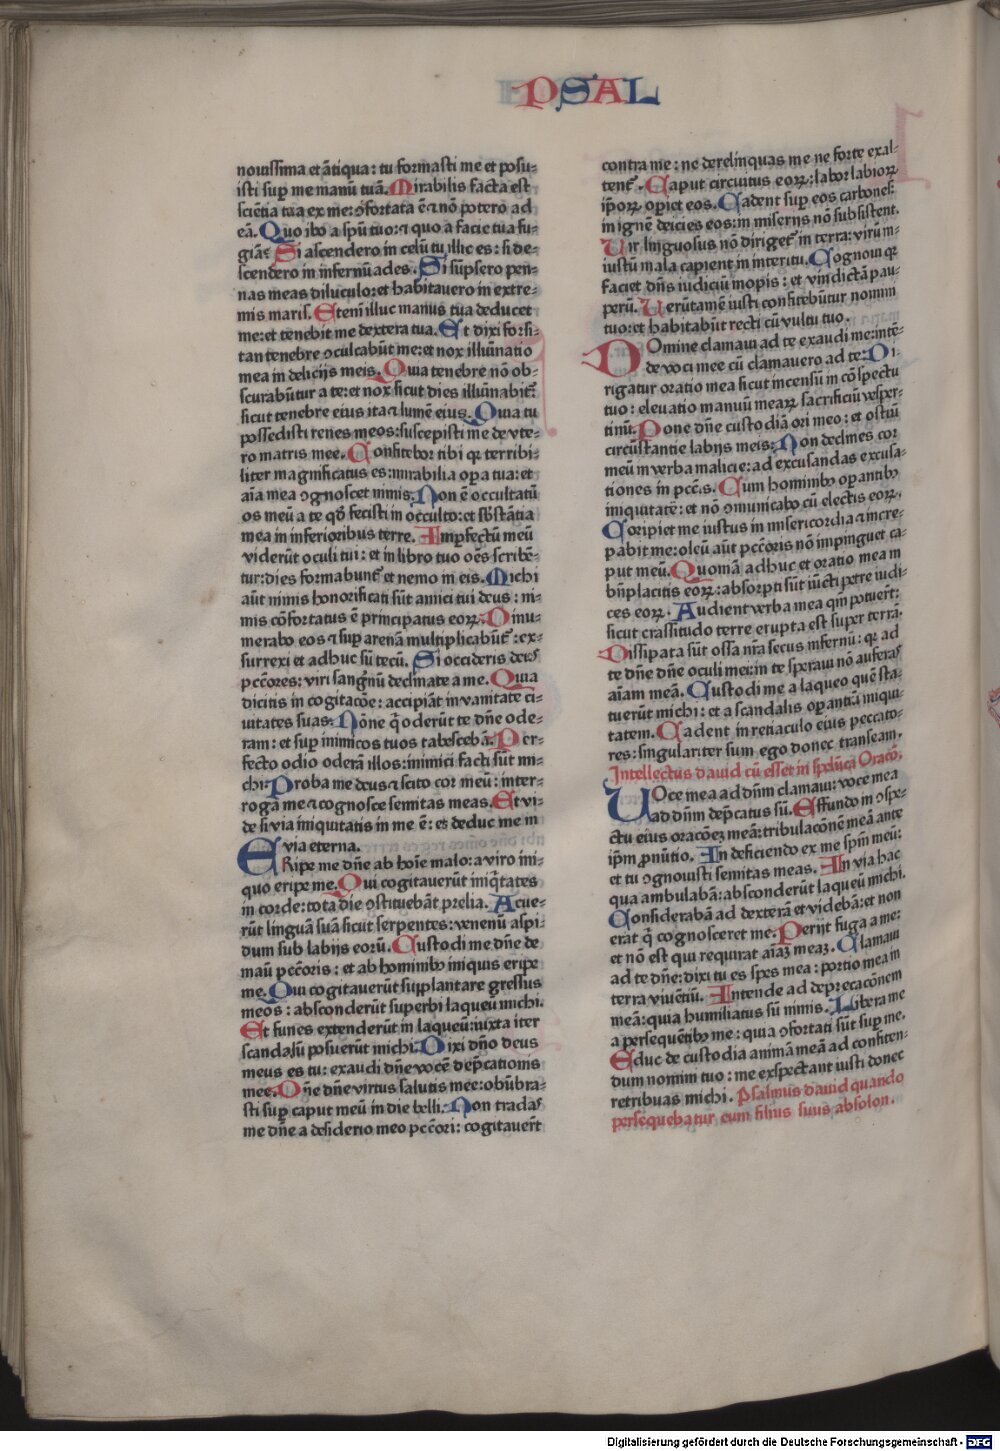 PSAL
nouissima et ātiqua: tu formasti me et posu-
isti sup me manū tuā. Mirabilis facta est
sciētia tua ex me: ꝯfortata ē ⁊ nō potero ad
eā. Quo ibo a spū tuo: ⁊ quo a facie tua fu-
giā? Si ascendero in celū tu illic es: si de-
scendero in infernū ades. Si sūpsero pen-
nas meas diluculo: et habitauero in extre-
mis maris. Eteni illuc manus tua deducet
me: et tenebit me dextera tua. Et dixi forsi-
tan tenebre ꝯculcabūt me: et nox illuīnatio
mea in delicijs meis. Quia tenebre nō ob-
scurabūtur a te: et nox sicut dies illuīnabit᷑:
sicut tenebre eius ita ⁊ lumē eius. Quia tu
possedisti renes meos: suscepisti me de vte-
ro matris mee. Cōfitebor tibi qꝛ terribi-
liter magnificatus es: mirabilia oꝑa tua: et
aīa mea ꝯgnoscet nimis. Non ē occultatū
os meū a te qd̄ fecisti in occulto: et sb̄stātia
mea in inferioribus terre. Imꝑfectū meū
viderūt oculi tui: et in libro tuo oēs scribē-
tur: dies formabunt᷑ et nemo in eis. Michi
aūt nimis honorificati sūt amici tui deus: ni-
mis cōfortatus ē principatus eoꝝ. Dinu-
merabo eos ⁊ suꝑ arenā multiplicabūt᷑: ex-
surrexi et adhuc sū tecū. Si occideris deus
pctōres: viri sangnū declinate a me. Quia
dicitis in cogitacōe: accipiāt in vanitate ci-
uitates suas. Nōne q̄ oderūt te dn̄e ode-
ram: et suꝑ inimicos tuos tabescebā. Per-
fecto odio oderā illos: inimici facti sūt mi-
chi. Proba me deus ⁊ scito cor meū: inter-
roga me ⁊ cognosce semitas meas. Et vi-
de si via iniquitatis in me ē: et deduc me in
via eterna.
Eripe me dn̄e ab hoīe malo: a viro ini-
quo eripe me. Qui cogitauerūt iniq̄tates
in corde: tota die ꝯstituebāt prelia. Acue-
rūt linguā suā sicut serpentes: venenū aspi-
dum sub labijs eorū. Custodi me dn̄e de
maū pctōris: et ab hominibꝫ iniquis eripe
me. Qui cogitauerūt supplantare gressus
meos: absconderūt superbi laqueū michi.
Et funes extenderūt in laqueū: iuxta iter
scandalū posuerūt michi. Dixi dn̄o deus
meus es tu: exaudi dn̄e vocē dep̄cationis
mee. Dn̄e dn̄e virtus salutis mee: obūbra-
sti suꝑ caput meū in die belli. Non tradas
me dn̄e a desiderio meo pctōri: cogitauerūt
contra me: ne derelinquas me ne forte exal-
tent᷑. Caput circuitus eoꝝ: labor labioꝝ
ip̄oꝝ oꝑiet eos. Cadent suꝑ eos carbones:
in ignē deicies eos: in miserijs nō subsistent.
Vir linguosus nō diriget᷑ in terra: virū in-
iustū mala capient in interitu. Cognoui qꝛ
faciet dn̄s iudiciū inopis: et vindictā pau-
perū. Verūtamē iusti confitebūtur nomini
tuo: et habitabūt recti cū vultu tuo.
Domine clamaui ad te exaudi me: intē-
de voci mee cū clamauero ad te. Di-
rigatur oratio mea sicut incensū in cōspectu
tuo: eleuatio manuū meaꝝ sacrificiū vesper-
tinū. Pone dn̄e custodiā ori meo: et ostiū
circūstantie labijs meis. Non declines cor
meū in verba malicie: ad excusandas excusa-
tiones in pctīs. Cum hominibꝫ oꝑantibꝫ
iniquitatē: et nō ꝯmunicabo cū electis eoꝝ.
Coripiet me iustus in misericordia ⁊ incre-
pabit me: oleū aūt pctōris nō impinguet ca-
put meū. Quoniā adhuc et oratio mea in
bn̄placitis eoꝝ: absorpti sūt iūcti petre iudi-
ces eoꝝ. Audient verba mea qm̄ potuerūt:
sicut crassitudo terre erupta est super terrā.
Dissipata sūt ossa nr̄a secus infernū: qꝛ ad
te dn̄e dn̄e oculi mei: in te speraui nō auferas
aīam meā. Custodi me a laqueo quē sta-
tuerūt michi: et a scandalis oꝑantiū iniqui-
tatem. Cadent in retiaculo eius peccato-
res: singulariter sum ego donec transeam.
Intellectus dauid cū esset in spelūca Oracō.
Voce mea ad dn̄m clamaui: voce mea
ad dn̄m dep̄catus sū. Effundo in ꝯspe-
ctu eius oracōeꝫ meā: tribulacōnē meā ante
ip̄m ꝓnūtio. In deficiendo ex me spm̄ meū:
et tu ꝯgnouisti semitas meas. In via hac
qua ambulabā: absconderūt laqueū michi.
Considerabā ad dexterā et videbā: et non
erat q̄ cognosceret me. Perijt fuga a me:
et nō est qui requirat aīaꝫ meaꝫ. Clamaui
ad te dn̄e: dixi tu es spes mea: portio mea in
terra viuētiū. Intende ad deprecacōnem
meā: quia humiliatus sū nimis. Libera me
a persequētibꝫ me: quia ꝯfortati sūt suꝑ me.
Educ de custodia animā meā ad confiten-
dum nomini tuo: me exspectant iusti donec
retribuas michi. Psalmus dauid quando
persequebatur eum filius suus absolon.
Digitalisierung gefördert durch die Deutsche Forschungsgemeinschaft - DFG